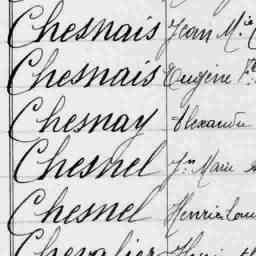 Chesnais Jean M.ie
Chesnais Eugène F.
Chesnay Alexandre
Chesnel J.n Marie
Chesnel Henri Lou
Chevalier Henri